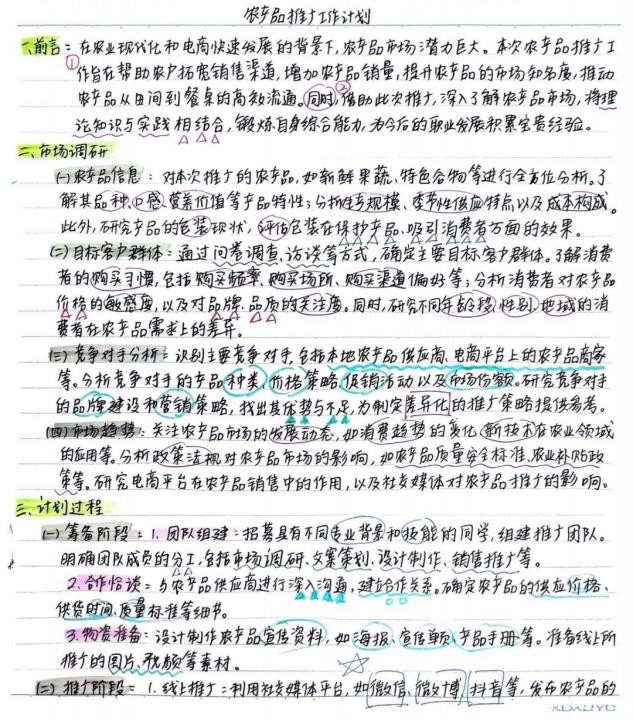 农产品推广工作计划
一、前言：在农业现代化和电商快速发展的背景下，农产品市场潜力巨大。本次农产品推广工
①
作旨在帮助农户拓宽销售渠道，增加农产品销量，提升农产品的市场知名度，推动
农产品从田间到餐桌的高效流通。同时，②借助此次推广，深入了解农产品市场，将理
论知识与实践相结合，锻炼自身综合能力，为今后的职业发展积累宝贵经验。
二、市场调研
(一)农产品信息：对本次推广的农产品，如新鲜果蔬、特色谷物等进行全方位分析。了
解其品种、口感、营养价值等产品特性；分析生产规模、季节性供应特点以及成本构成。
此外，研究产品的包装现状，评估包装在保护产品、吸引消费者方面的效果。
(二)目标客户群体：通过问卷调查、访谈等方式，确定主要目标客户群体。了解消费
者的购买习惯，包括购买频率、购买场所、购买渠道偏好等；分析消费者对农产品
价格的敏感度，以及对品牌、品质的关注度。同时，研究不同年龄段、性别、地域的消
费者在农产品需求上的差异。
(三)竞争对手分析：识别主要竞争对手，包括本地农产品供应商、电商平台上的农产品商家
等。分析竞争对手的产品种类、价格策略、促销活动以及市场份额。研究竞争对手
的品牌建设和营销策略，找出其优势与不足，为制定差异化的推广策略提供参考。
(四)市场趋势：关注农产品市场的发展动态，如消费趋势的变化、新技术在农业领域
的应用等。分析政策法规对农产品市场的影响，如农产品质量安全标准、农业补贴政
策等。研究电商平台在农产品销售中的作用，以及社交媒体对农产品推广的影响。
三、计划过程
(一)筹备阶段：1.团队组建：招募具有不同专业背景和技能的同学，组建推广团队。
明确团队成员的分工，包括市场调研、文案策划、设计制作、销售推广等。
2.合作洽谈：与农产品供应商进行深入沟通，建立合作关系。确定农产品的供应价格、
供货时间、质量标准等细节。
3.物资准备：设计制作农产品宣传资料，如海报、宣传单页、产品手册等。准备线上所
推广的图片、视频等素材。
(二)推广阶段：1.线上推广：利用社交媒体平台，如微信、微博、抖音等，发布农产品的